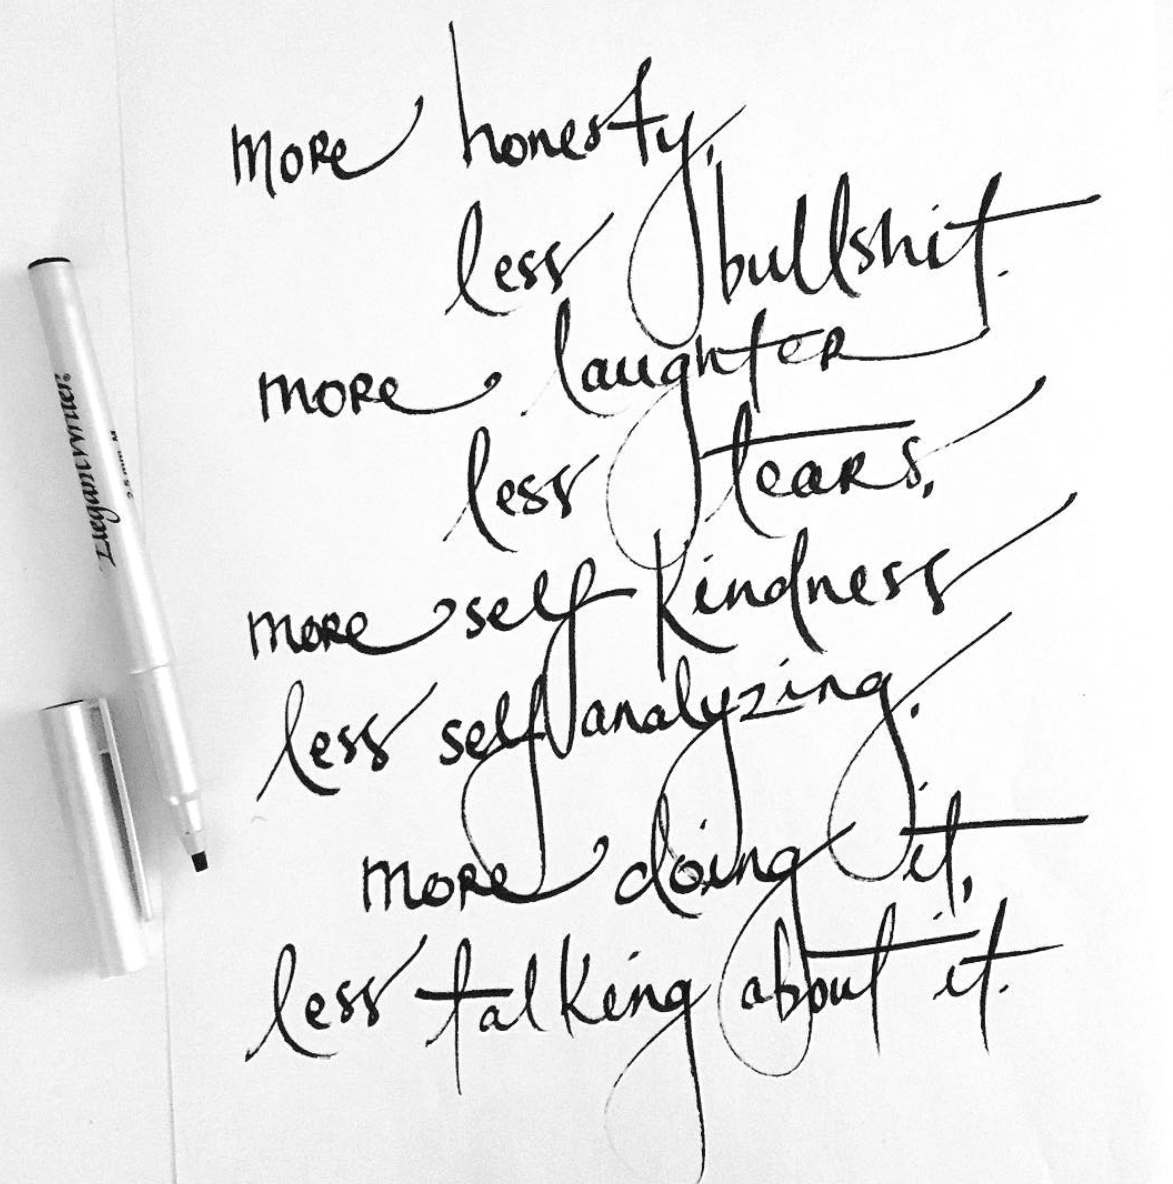 more honesty,
less bullshit.
more laughter
less tears.
more self kindness
less self analyzing.
more doing it,
less talking about it.
Elegant Writer